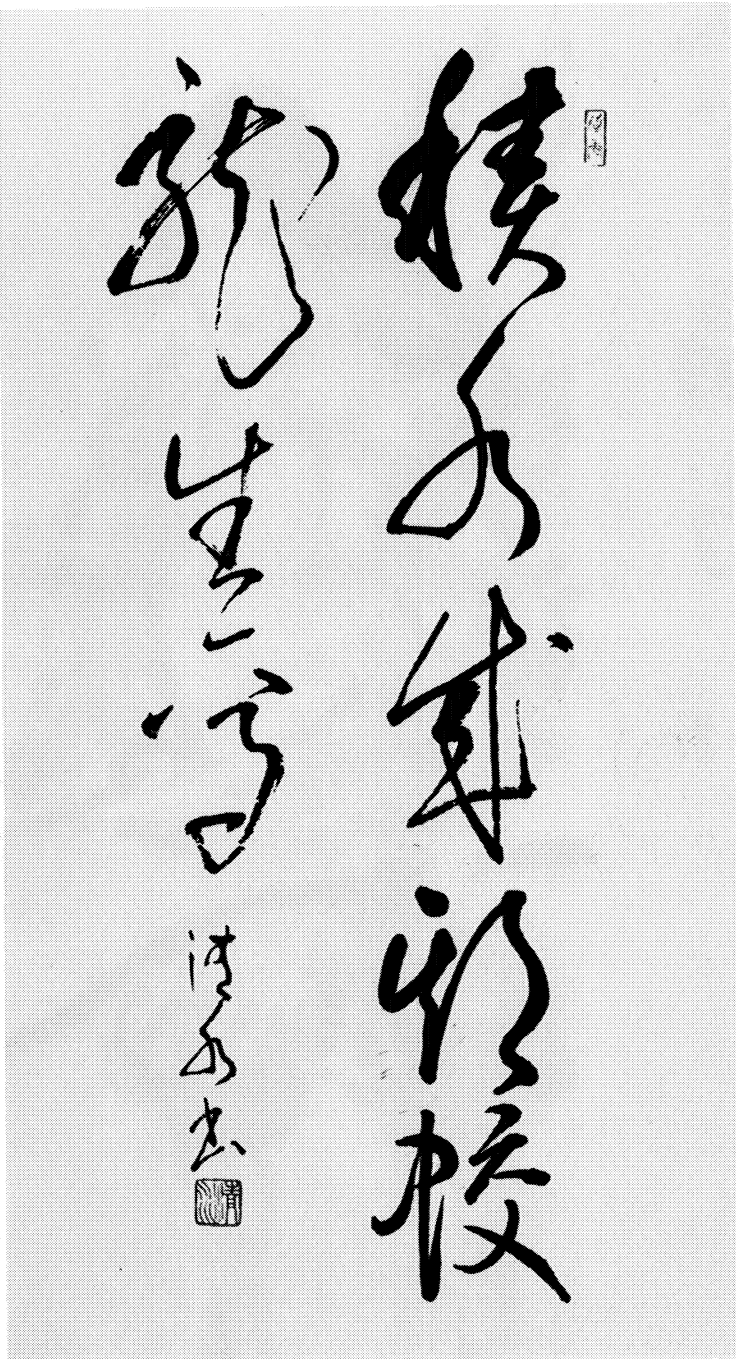 積水成淵蛟
龍生焉 清水書